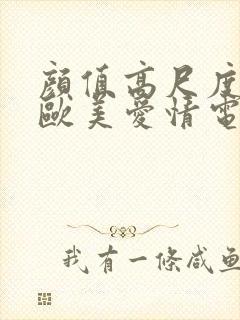 顔值高尺度
歐美愛情電
我有一條咸魚